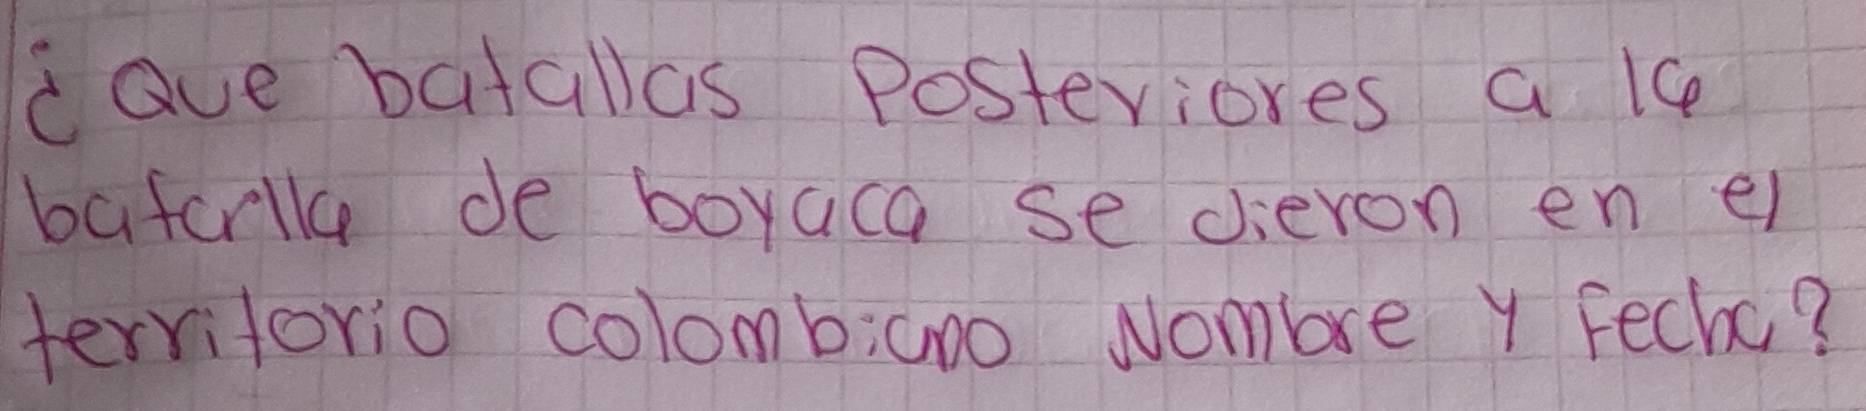 ¿Que batallas Posteriores a la
batarlla de boyaca se dieron en el
territorio colombiano Nombre y Fecha?